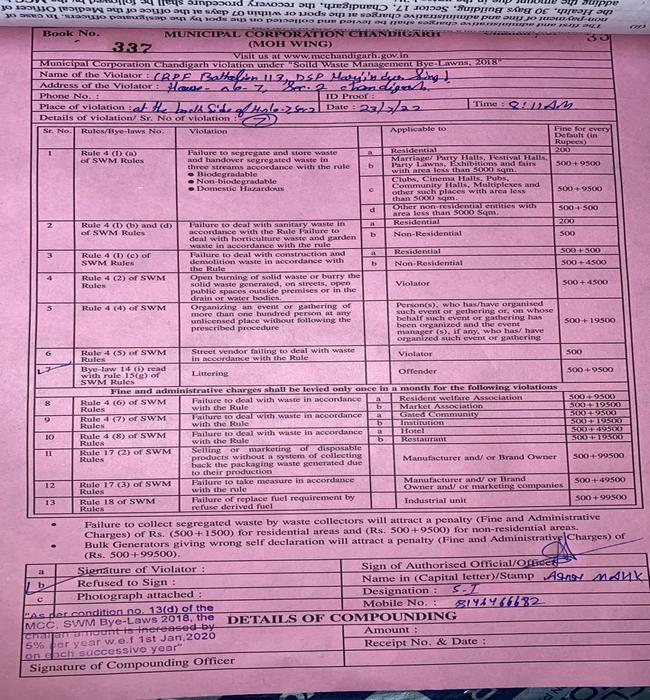 adding the amount due in the
the Health, 30 Bays Building, Sector 17, Chandigarh, the recovery procedure shall be followed by the MCC
non-payment of fine and administrative charges at the spot or within 07 days in the office of the Medical Officer of
The fine and administrative charges shall be levied and collected on the spot by the designated officers. In case of
(ii)
Book No.
337
MUNICIPAL CORPORATION CHANDIGARH
(MOH WING)
Visit us at www.mcchandigarh.gov.in
Municipal Corporation Chandigarh violation under "Soild Waste Management Bye-Lawns, 2018"
Name of the Violator : CRPF Battalion 113, DSP
Address of the Violator : House- no- 7, Sec. 2 Chandigarh.
Phone No. : ID Proof :
Place of violation : at the back Side of H.no-2 Sec 2 Date : 23/7/22 Time : 8:11 AM
Details of violation/ Sr. No of violation : 7
Sr. No. Rules/Bye-laws No. Violation Applicable to Fine for every Default (in Rupees)
1 Rule 4 (I) (a) of SWM Rules Failure to segregate and store waste a Residential 200
and handover segregated waste in three streams accordance with the rule b Marriage/ Party Halls, Festival Halls, Party Lawns, Exhibitions and fairs with area less than 5000 Sqm. 500+9500
• Biodegradable
• Non-biodegradable
• Domestic Hazardous
c Clubs, Cinema Halls, Pubs, Community Halls, Multiplexes and other such places with area less than 5000 sqm. 500+9500
d Other non-residential entities with area less than 5000 Sqm. 500+500
2 Rule 4 (I) (b) and (d) of SWM Rules Failure to deal with sanitary waste in accordance with the Rule Failure to deal with horticulture waste and garden waste in accordance with the rule a Residential 200
b Non-Residential 500
3 Rule 4 (I) (c) of SWM Rules Failure to deal with construction and demolition waste in accordance with the Rule a Residential 500+500
b Non-Residential 500+4500
4 Rule 4 (2) of SWM Rules Open burning of solid waste or burry the solid waste generated, on streets, open public spaces outside premises or in the drain or water bodies. Violator 500+4500
5 Rule 4 (4) of SWM Rules Organizing an event or gathering of more than one hundred person at any unlicensed place without following the prescribed procedure Person(s), who has/have organised such event or gethering or, on whose behalf such event or gathering has been organized and the event manager (s), if any, who has/ have organized such event or gathering 500+19500
6 Rule 4 (5) of SWM Rules Street vendor failing to deal with waste in accordance with the Rule Violator 500
7 Bye-law 14 (i) read with rule 15(g) of SWM Rules Littering Offender 500+9500
Fine and administrative charges shall be levied only once in a month for the following violations
8 Rule 4 (6) of SWM Rules Failure to deal with waste in accordance with the Rule a Resident welfare Association 500+9500
b Market Association 500+19500
9 Rule 4 (7) of SWM Rules Failure to deal with waste in accordance with the Rule a Gated Community 500+9500
b Institution 500+19500
10 Rule 4 (8) of SWM Rules Failure to deal with waste in accordance with the Rule a Hotel 500+49500
b Restaurant 500+19500
11 Rule 17 (2) of SWM Rules Selling or marketing of disposable products without a system of collecting back the packaging waste generated due to their production Manufacturer and/ or Brand Owner 500+99500
12 Rule 17 (3) of SWM Rules Failure to take measure in accordance with the rule Manufacturer and/ or Brand Owner and/ or marketing companies 500+49500
13 Rule 18 of SWM Rules Failure of replace fuel requirement by refuse derived fuel Industrial unit 500+99500
• Failure to collect segregated waste by waste collectors will attract a penalty (Fine and Administrative
Charges) of Rs. (500+1500) for residential areas and (Rs. 500+9500) for non-residential areas.
• Bulk Generators giving wrong self declaration will attract a penalty (Fine and Administrative Charges) of
(Rs. 500+99500).
a Signature of Violator : Sign of Authorised Official/Officer
b Refused to Sign : Name in (Capital letter)/Stamp
c Photograph attached : Designation : S-I
Mobile No. : 8146466682
"As per condition no. 13(d) of the
MCC, SWM Bye-Laws 2018, the
challan amount is increased by
5% per year w.e.f 1st Jan,2020
on each successive year"
DETAILS OF COMPOUNDING
Amount :
Receipt No. & Date :
Signature of Compounding Officer